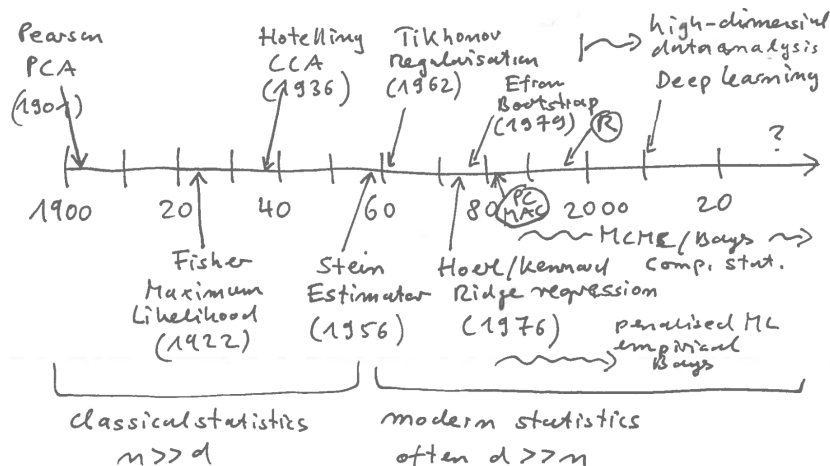 Pearson
PCA
(1901)
Hotelling
CCA
(1936)
Tikhonov
Regularisation
(1962)
Efron
Bootstrap
(1979)
R
high-dimensial
data analysis
Deep learning
?
1900
20
40
60
80
2000
20
PC
MAC
MCMC/Bays
comp. stat.
Fisher
Maximum
Likelihood
(1922)
Stein
Estimator
(1956)
Hoerl/Kennard
Ridge regression
(1976)
penalised ML
empirical
Bays
classical statistics
n>>d
modern statistics
often d>>n